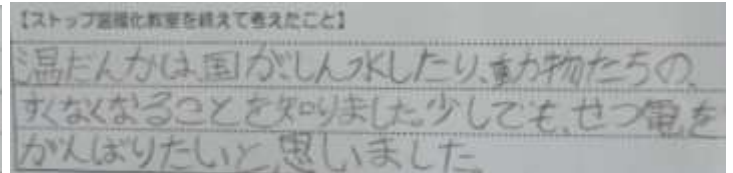 【ストップ温暖化教室を終えて考えたこと】
温だんかは、国がしん水したり、動物たちの、
すくなくなることを知りました。少しでも、せつ電を
がんばりたいと、思いました。